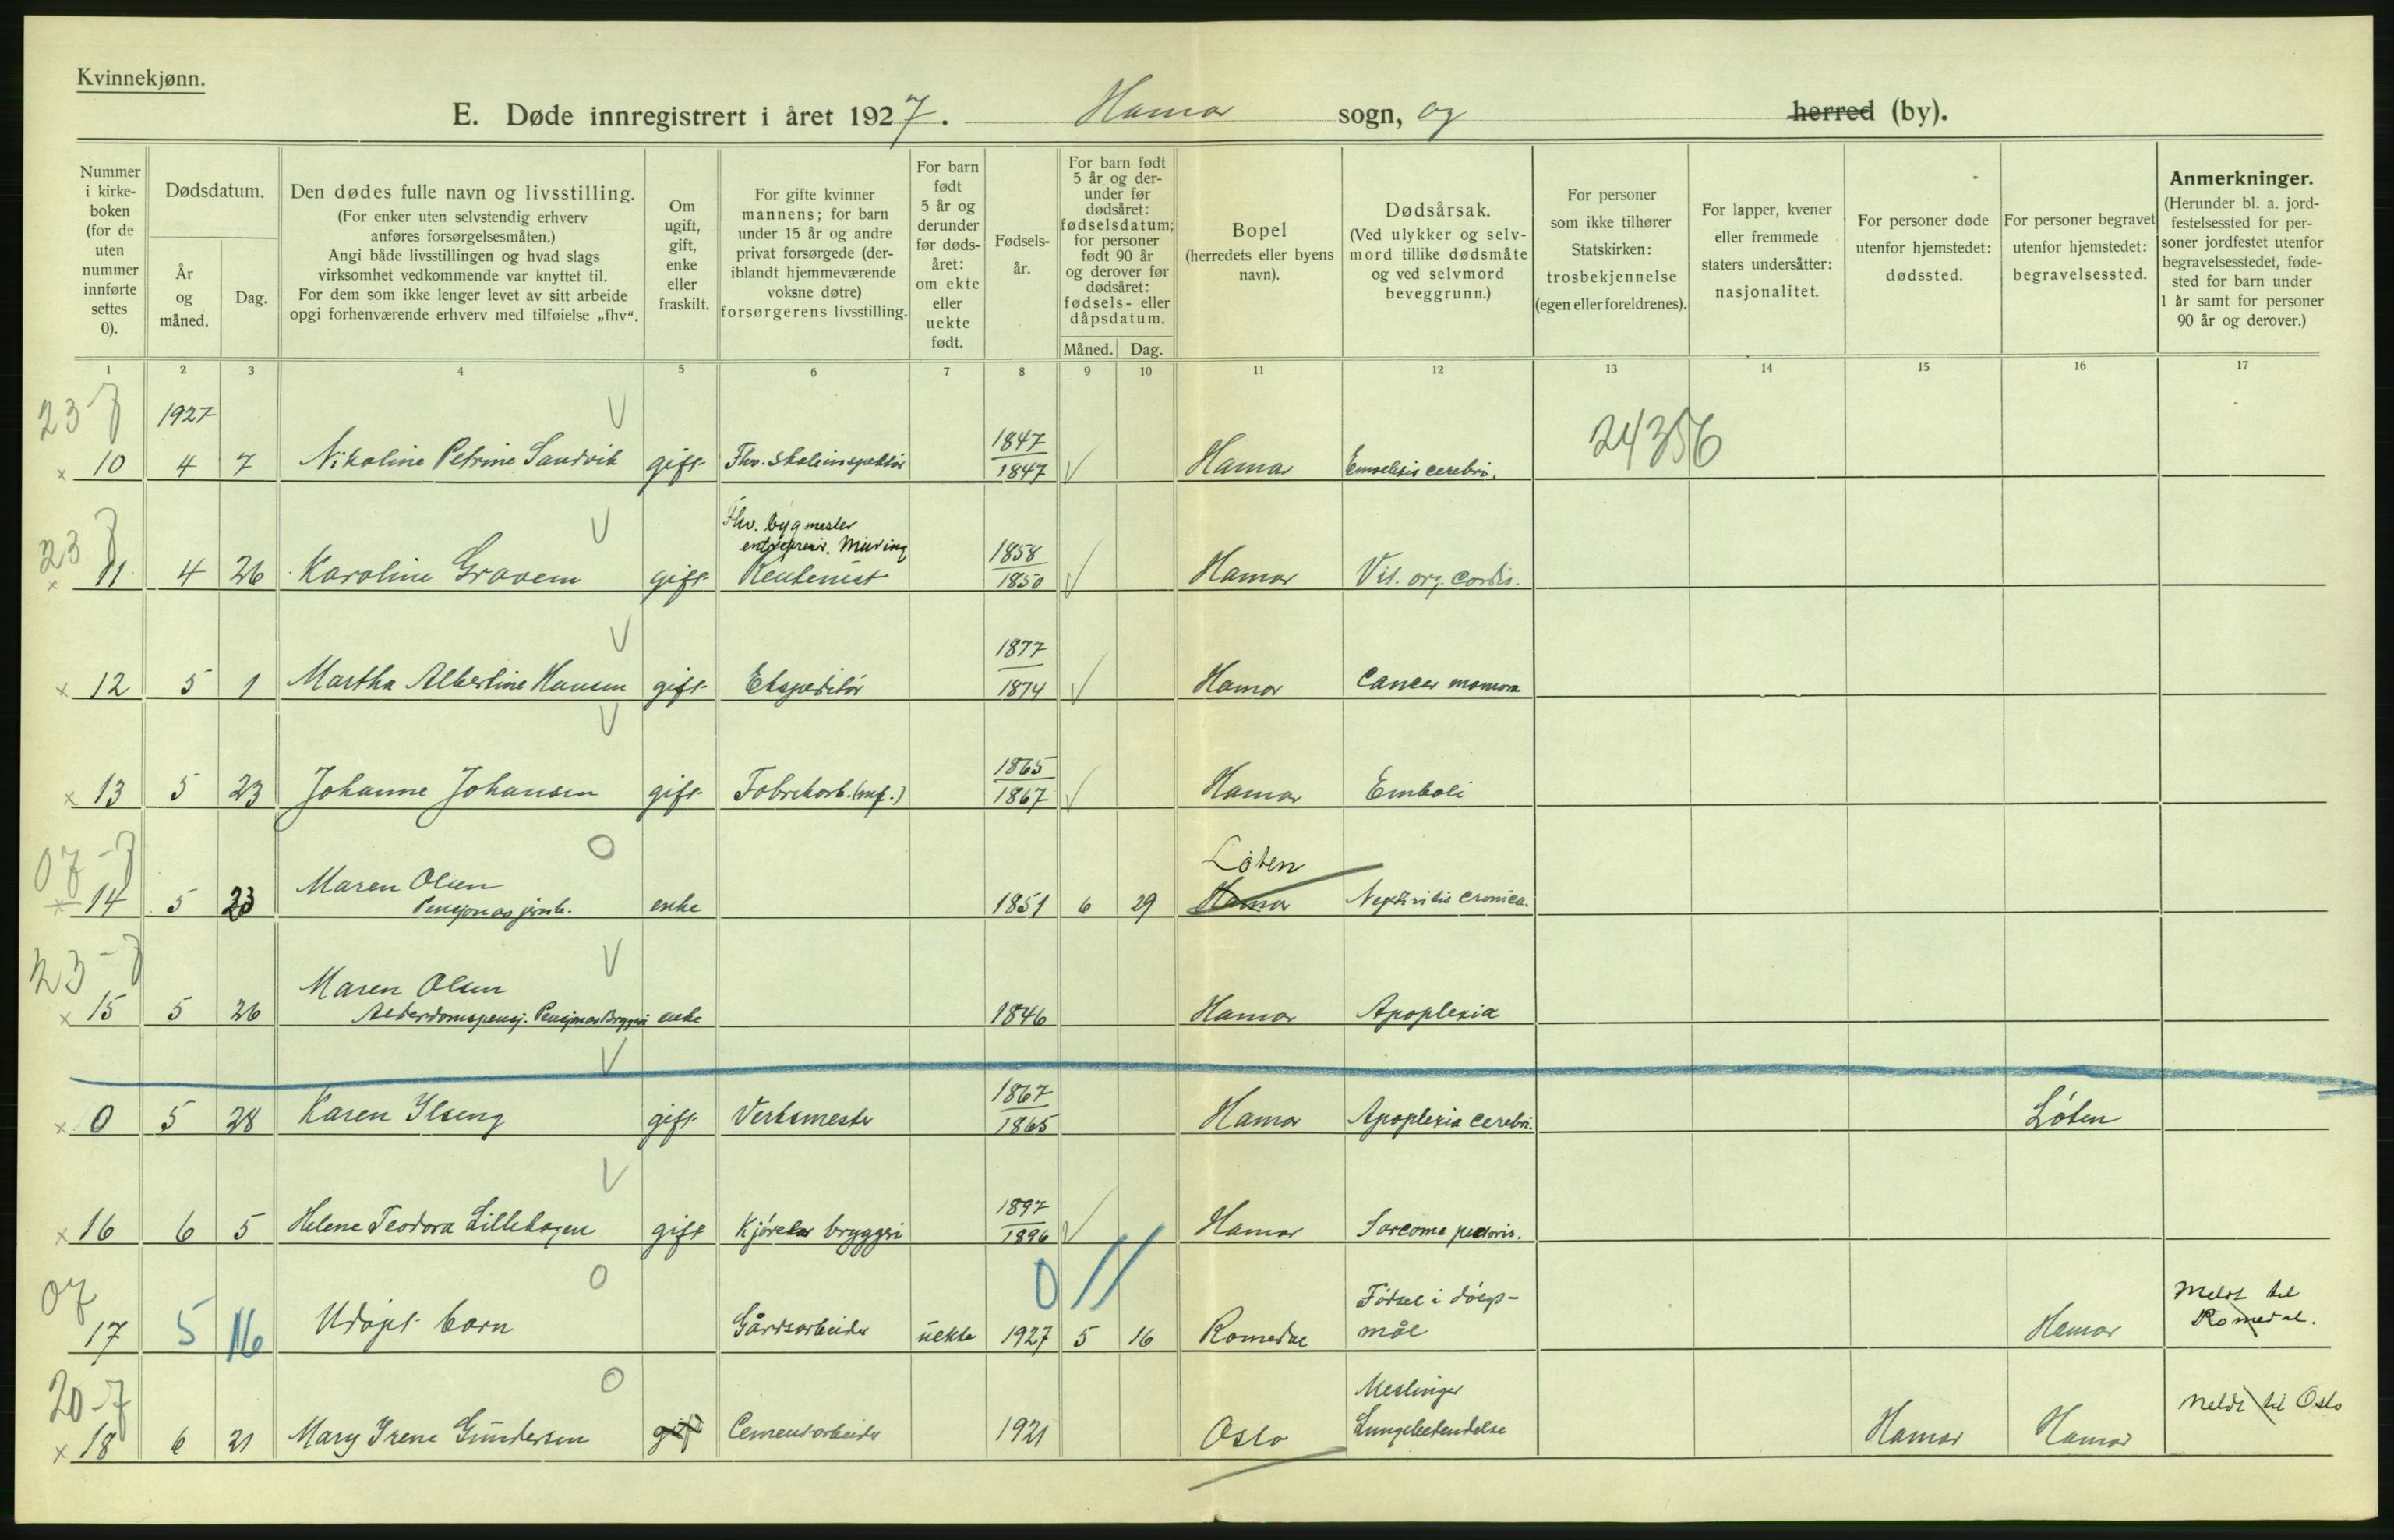 Kvinnekjønn.
E. Døde innregistrert i året 1927. Hamar sogn, og herred (by).
Nummer i kirke-boken (for de uten nummer innførte settes 0).
Dødsdatum.
År og måned.
Dag.
Den dødes fulle navn og livsstilling.
(For enker uten selvstendig erhverv anføres forsørgelsesmåten.)
Angi både livsstillingen og hvad slags virksomhet vedkommende var knyttet til.
For dem som ikke lenger levet av sitt arbeide opgi forhenværende erhverv med tilføielse „fhv“.
Om ugift, gift, enke eller fraskilt.
For gifte kvinner mannens; for barn under 15 år og andre privat forsørgede (deriblandt hjemmeværende voksne døtre) forsørgerens livsstilling.
For barn født 5 år og derunder før dødsåret: om ekte eller uekte født.
Fødsels-år.
For barn født 5 år og derunder før dødsåret: fødselsdatum; for personer født 90 år og derover før dødsåret: fødsels- eller dåpsdatum.
Måned. Dag.
Bopel (herredets eller byens navn).
Dødsårsak.
(Ved ulykker og selvmord tillike dødsmåte og ved selvmord beveggrunn.)
For personer som ikke tilhører Statskirken: trosbekjennelse (egen eller foreldrenes).
For lapper, kvener eller fremmede staters undersåtter: nasjonalitet.
For personer døde utenfor hjemstedet: dødssted.
For personer begravet utenfor hjemstedet: begravelsessted.
Anmerkninger.
(Herunder bl. a. jordfestelsessted for personer jordfestet utenfor begravelsesstedet, fødested for barn under 1 år samt for personer 90 år og derover.)
1 2 3 4 5 6 7 8 9 10 11 12 13 14 15 16 17
23-7 1927 V 24356
x 10 4 7 Nikoline Petrine Sandvik gift Fhv. skoleinspektør 1847 1847 Hamar cerebri.
23 7 V Fhv. bygmester
x 11 4 26 Karoline Gravem gift Rentenist 1858 1850 Hamar Vit. org. cordis.
V
x 12 5 1 Martha Albertine Hansen gift Ekspeditør 1877 1874 Hamar Cancer mamma
V
x 13 5 23 Johanne Johansen gift Fabrikarb. 1865 1867 Hamar Emboli
07-7 O Løten
x 14 5 23 Maren Olsen enke 1851 6 29 Hamar Nephritis cronica.
23-7 V
x 15 5 26 Maren Olsen
Alderdomspensj. enke 1846 Hamar Apoplexia
V
x 0 5 28 Karen Ilseng gift Verksmester 1867 1865 Hamar Apoplexia cerebri. Løten
V
x 16 6 5 Helene Teodora Lillehagen gift Kjørekar bryggeri 1897 1896 Hamar Sarcoma pectoris.
07 O 0 //
17 5 16 Udøpt barn Gårdsarbeider uekte 1927 5 16 Romedal Fødsel i dølgs-
mål Hamar Meldt til
Romedal.
20-7 O
x 18 6 21 Mary Irene Gundersen gift Cementarbeider 1921 Oslo Meslinger
Lungebetendelse Hamar Hamar Meldt til Oslo